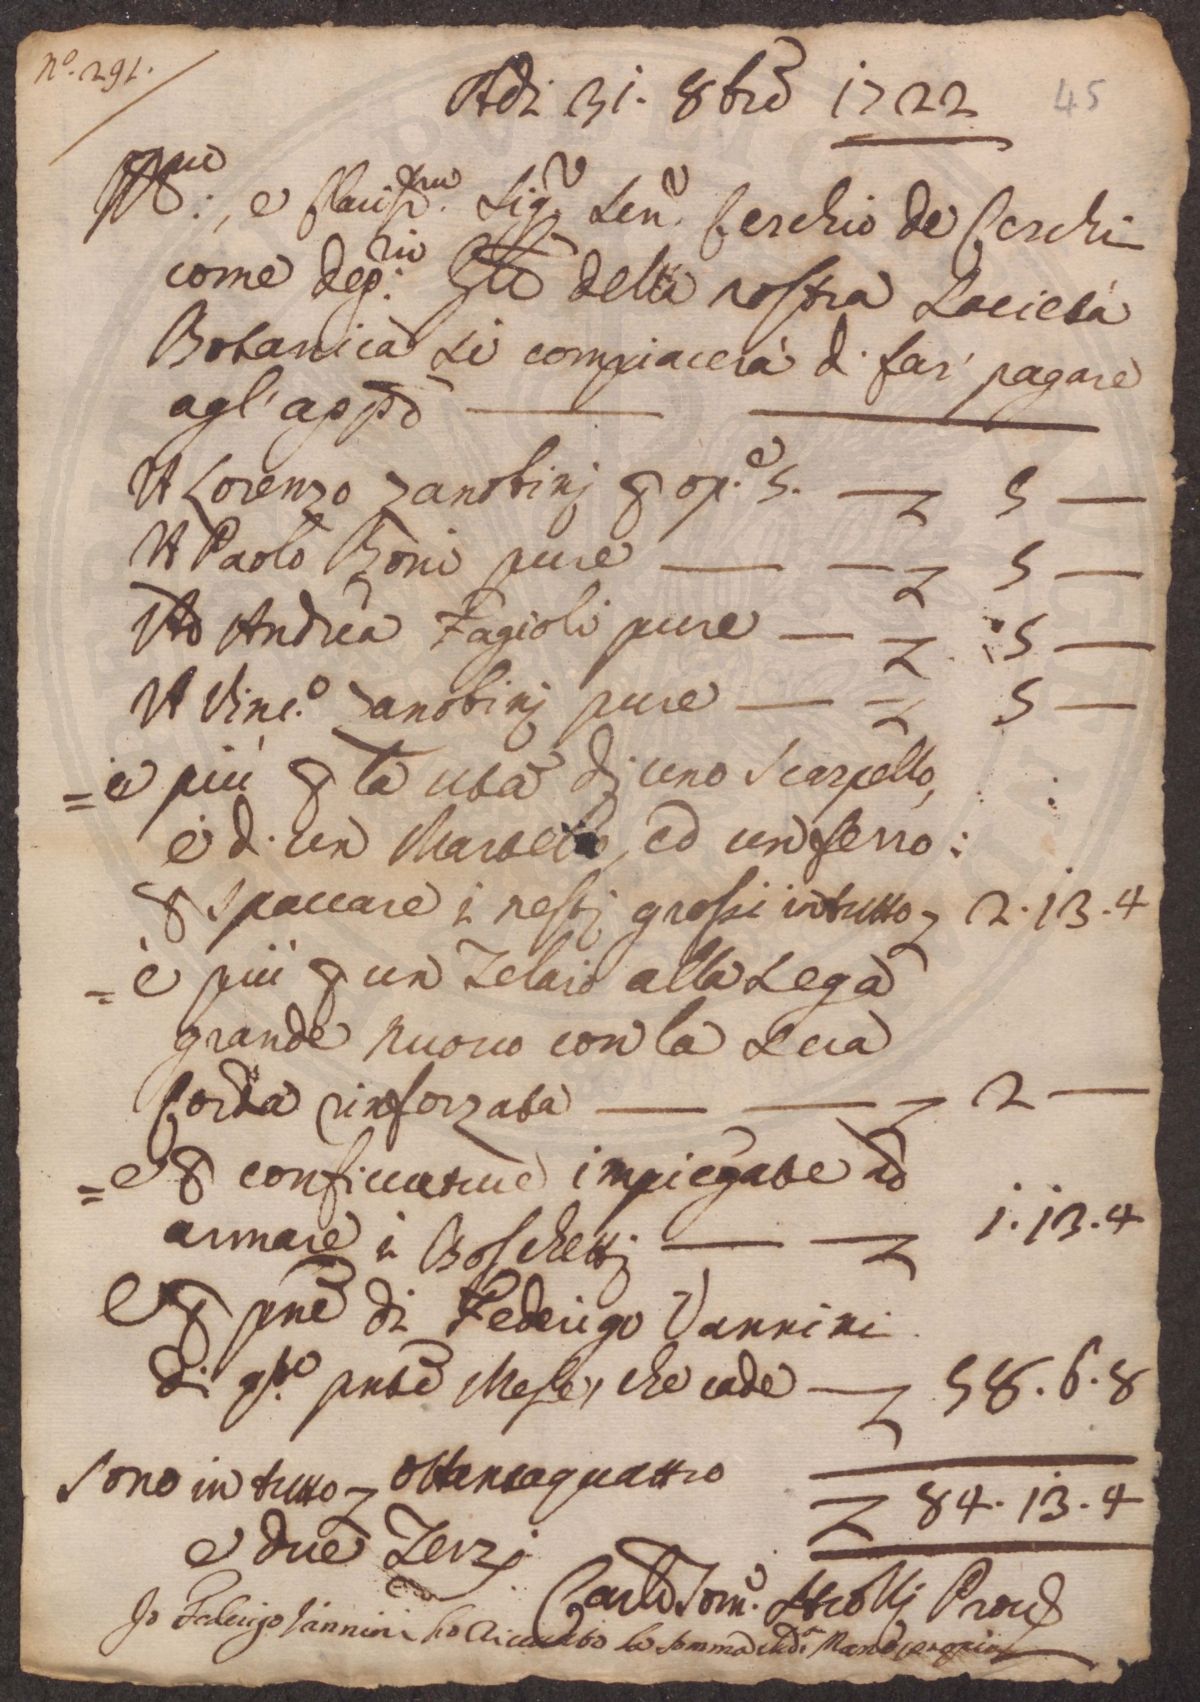 N.º 291.
Adi 31. 8bre 1722
45
Ill.mo, e Clariss.mo Sig.r Sen.r Cerchio de Cerchi
come dep.rio Gñle della nostra Società
Botanica si compiacerà di far' pagare
agl'appõ
A Lorenzo Zanobinj p op.e 5. — £ 5 —
A Paolo Boni pure — — £ 5 —
Ad Andrea Fagioli pure — £ 5 —
A Vinc.o Zanobinj pure — £ 5 —
= e più p la uta dj uno Scarpello,
e di un Martello, ed un ferro:
p spaccare i nestj grossi in tutto £ 2.13.4
= e più p un Telaio alla Sega
grande nuovo con la sua
Corda rinforzata — — £ 2 —
= e p conficcature impiegate ad
armare i Boschettj — — £ 1.13.4
E p pñe di Federigo Vannini
di q.sto pñte Mese, che cade — £ 58.6.8
Sono in tutto £ ottantaquattro
£ 84.13.4
e due Terzj
Carlo Tom.o Strozzj Prov.
Io Federigo Vannini ho riceuto la somma sud.a Mano propria